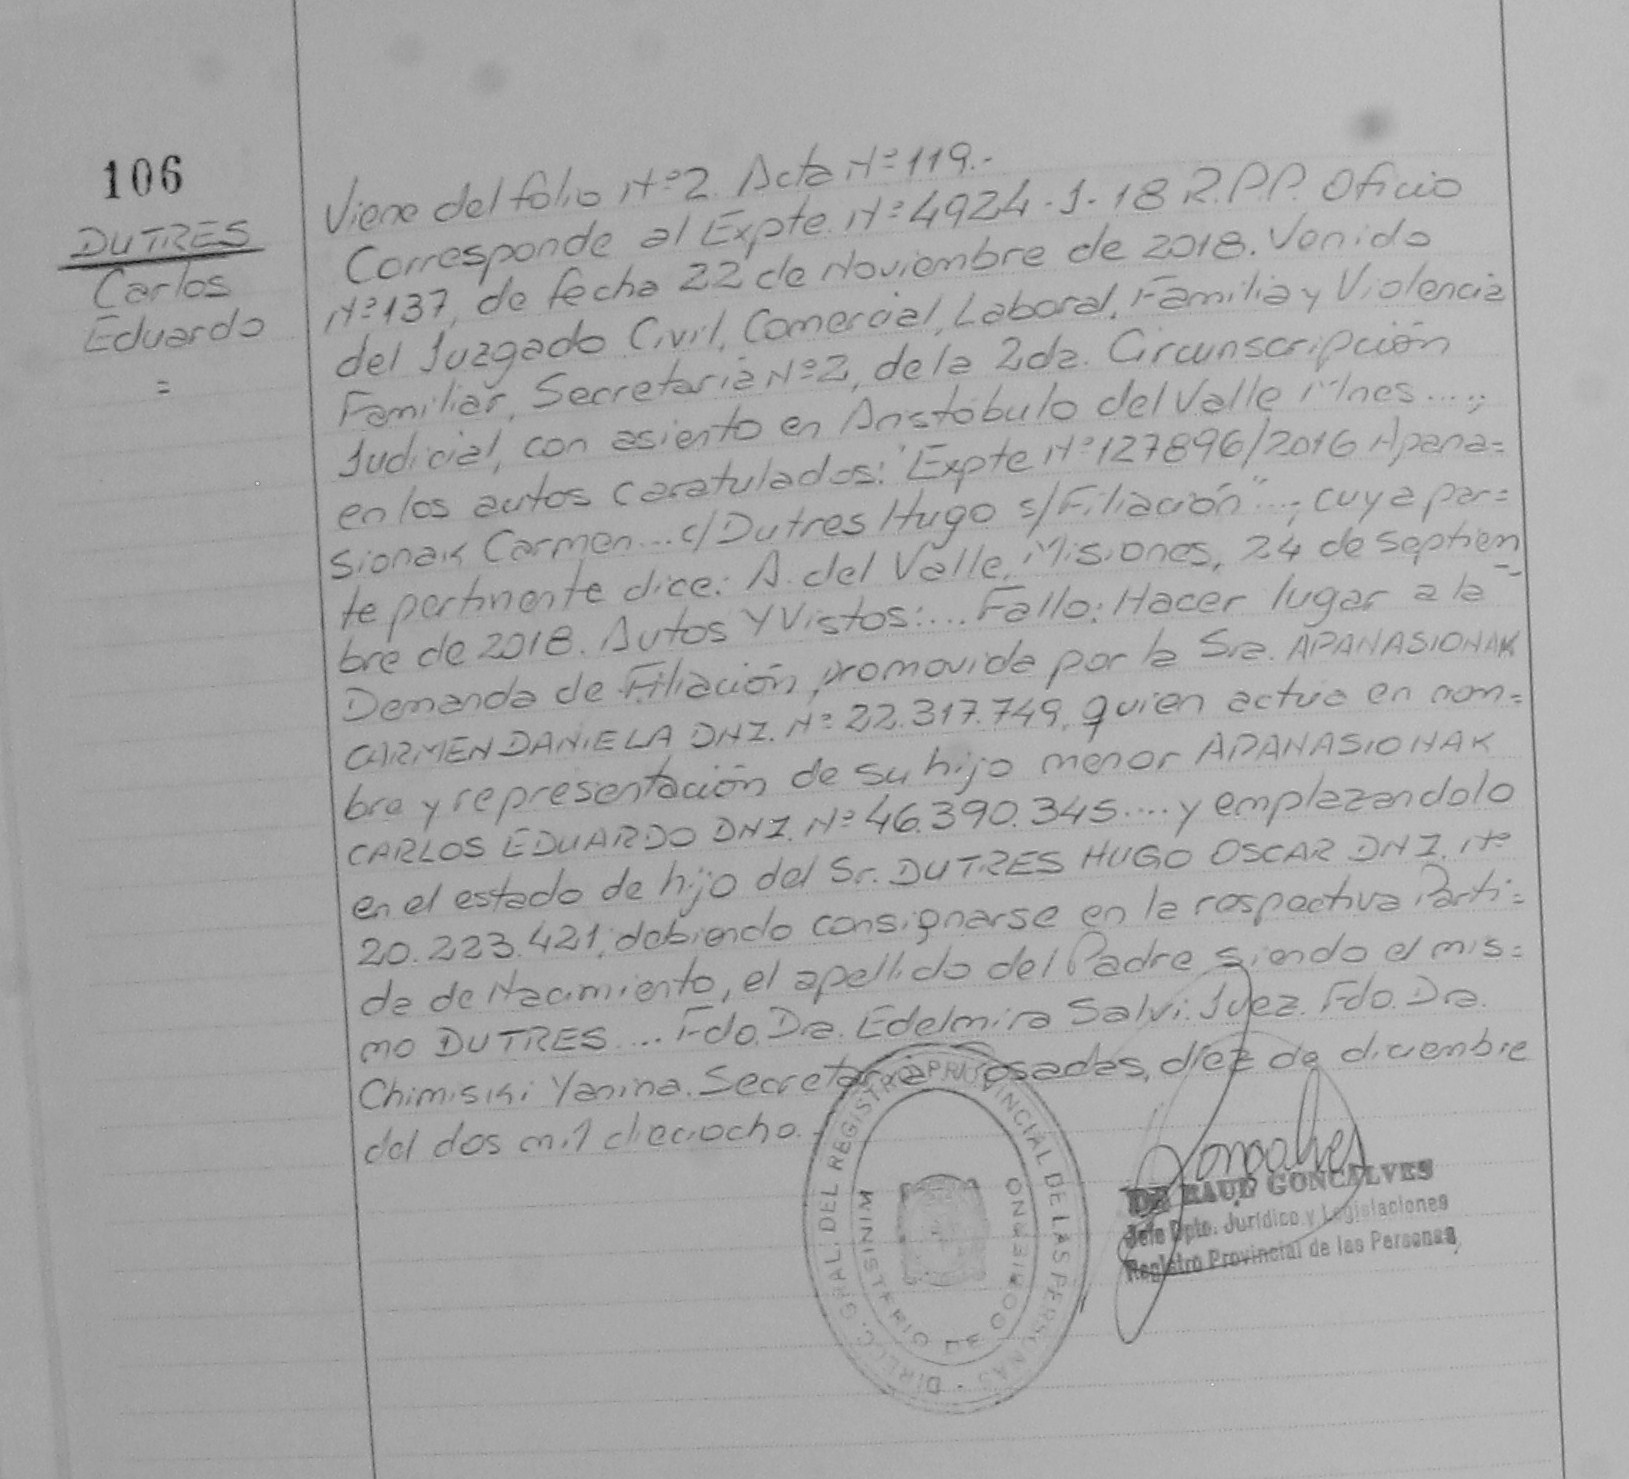 106
DUTRES
Carlos
Eduardo
=
Viene del folio Nº2. Acta Nº119.-
Corresponde al Expte. Nº4924-J-18 R.P.P. Oficio
Nº137, de fecha 22 de Noviembre de 2018. Venido
del Juzgado Civil, Comercial, Laboral, Familia y Violencia
Familiar, Secretaria Nº2, de la 2da. Circunscripción
Judicial, con asiento en Aristóbulo del Valle Mnes....;
en los autos caratulados: "Expte Nº127896/2016 Apana=
sionak Carmen... c/Dutres Hugo s/Filiación"...; cuya par=
te pertinente dice: A. del Valle, Misiones, 24 de septiem
bre de 2018. Autos Y Vistos:... Fallo: Hacer lugar a la
Demanda de Filiación, promovida por la Sra. APANASIONAK
CARMEN DANIELA DNI. Nº 22.317.749, quien actua en nom=
bre y representación de su hijo menor APANASIONAK
CARLOS EDUARDO DNI. Nº 46.390.345.... y emplazandolo
en el estado de hijo del Sr. DUTRES HUGO OSCAR DNI. Nº
20.223.421; debiendo consignarse en la respectiva Parti=
da de Nacimiento, el apellido del Padre siendo el mis=
mo DUTRES.... Fdo. Dra. Edelmira Salvi. Juez. Fdo. Dra.
Chimiski Yanina. Secretaria Posadas, diez de diciembre
del dos mil dieciocho.-
DIRECC. GRAL. DEL REGISTRO PROVINCIAL DE LAS PERSONAS
MINISTERIO DE GOBIERNO
Goncalves
DR RAUL GONCALVES
Jefe Dpto. Jurídico y Legislaciones
Registro Provincial de las Personas